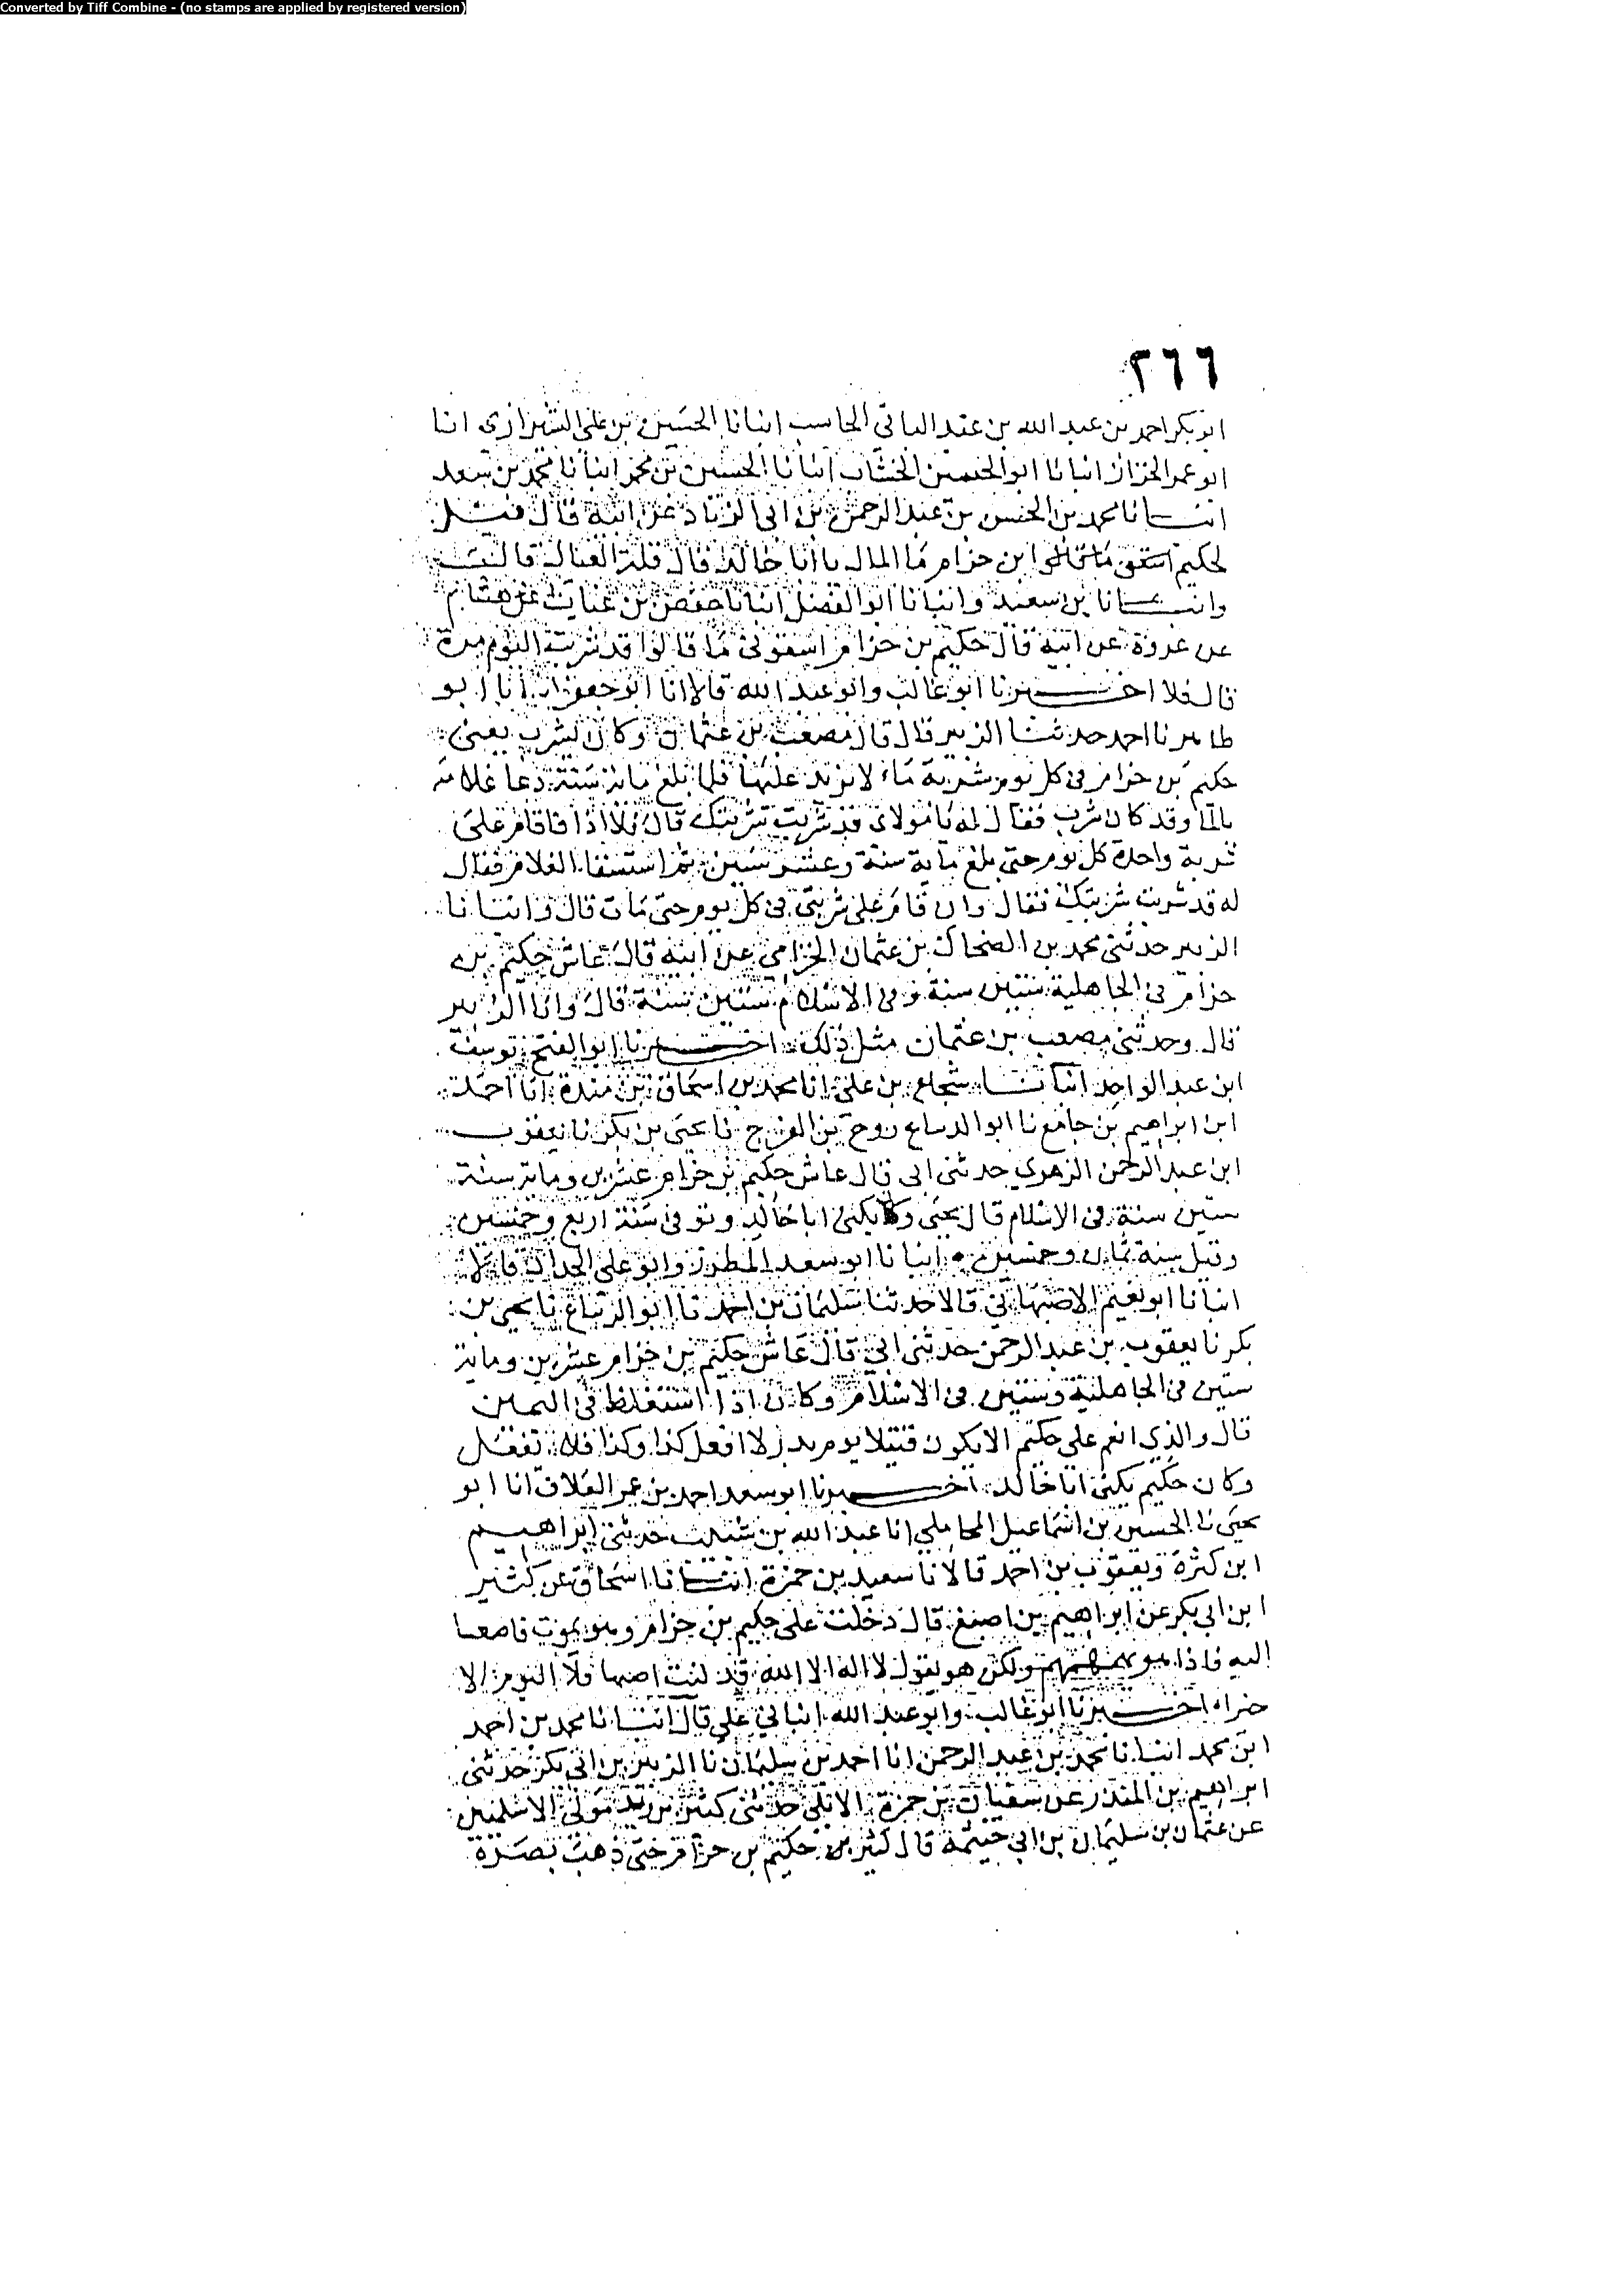 Converted by Tiff Combine - (no stamps are applied by registered version)
٢٦٦
ابو بكر احمد بن عبد الله بن عبد الباقي الحاسب انبانا الحسن بن علي الشيرازي انا
ابو عمر الخزاز انبانا ابو الحسين الخشاب انبانا الحسين بن محمد انبانا محمد بن سعد
انبانا محمد بن الحسن بن عبد الرحمن بن ابي الزناد عن ابيه قال قيل
لحكيم ابن حزام ما المال يا ابا خالد قال قلة العيال قال
وانبانا بن سعيد وانبانا ابو الفضل انبانا حفص بن غياث عن هشام
عن عروة عن ابيه قال حكيم بن حزام اسقوني ما قالوا قد شربت اليوم مرة
قال فلا اخبرنا ابو غالب وابو عبد الله قالا انا ابو جعفر انا ابو
طاهر نا احمد حدثنا الزبير قال قال مصعب بن عثمان وكان يشرب يعني
حكيم بن حزام في كل يوم شربة ماء لا يزيد عليها فلما بلغ ماية سنة دعا غلامه
بالما وقد كان شرب فقال له يا مولاي قد شربت شربتك قال فلا اذا فاقام على
شربة واحدة كل يوم حتى بلغ ماية سنة وعشر سنين ثم استسقا الغلام فقال
له قد شربت شربتك فقال وان فاقام على شربتين في كل يوم حتى مات قال وانبانا
الزبير حدثني محمد بن الضحاك بن عثمان الحزامي عن ابيه قال عاش حكيم بن
حزام في الجاهلية ستين سنة وفي الاسلام ستين سنة قال وانا الزبير
قال وحدثني مصعب بن عثمان مثل ذلك اخبرنا ابو الفتح يوسف
ابن عبد الواحد انبانا شجاع بن علي انا محمد بن اسحاق بن مندة انا احمد
ابن ابراهيم بن جامع نا ابو الزنباع روح بن الفرج نا يحيى بن بكر نا يعقوب
ابن عبد الرحمن الزهري حدثني ابي قال عاش حكيم بن حزام عشرين وماية سنة
ستين سنة في الاسلام قال يحيى وكان يكنى ابا خالد وتوفي سنة اربع وخمسين
وقيل سنة ثمان وخمسين انبانا ابو سعد المطرز وابو علي الحداد قالا
انبانا ابو نعيم الاصبهاني قالا حدثنا سليمان بن احمد نا ابو الزنباع نا يحيى بن
بكر نا يعقوب بن عبد الرحمن حدثني ابي قال عاش حكيم بن حزام عشرين وماية
ستين في الجاهلية وستين في الاسلام وكان اذا استغلظ في اليمين
قال والذي انعم على حكيم الا يكون قتيلا يوم بدر لا افعل كذا وكذا فلا يفعل
وكان حكيم يكنى ابا خالد اخبرنا ابو سعد احمد بن عمر العلاف انا ابو
يحيى نا الحسين بن اسماعيل المحاملي انا عبد الله بن شبيب حدثني ابراهيم
ابن كثرة ويعقوب بن احمد قالا نا سعيد بن حمزة انبانا اسحاق عن كثير
ابن ابي بكر عن ابراهيم بن اصبغ قال دخلت على حكيم بن حزام وهو يموت
اليه فاذا هو يهمهم ولكن هو يقول لا اله الا الله قد كنت فلا اليوم الا
اخبرنا ابو غالب وابو عبد الله ابنا ابي علي قالا انبانا محمد بن احمد
ابن محمد انبانا محمد بن عبد الرحمن انا احمد بن سليمان نا الزبير بن ابي بكر حدثني
ابراهيم بن المنذر عن سفيان بن حمزة الاسلمي حدثني كثير بن زيد مولى الاسلميين
عن عثمان بن سليمان بن ابي حيثمة قال كبر حكيم بن حزام حتى ذهب بصره